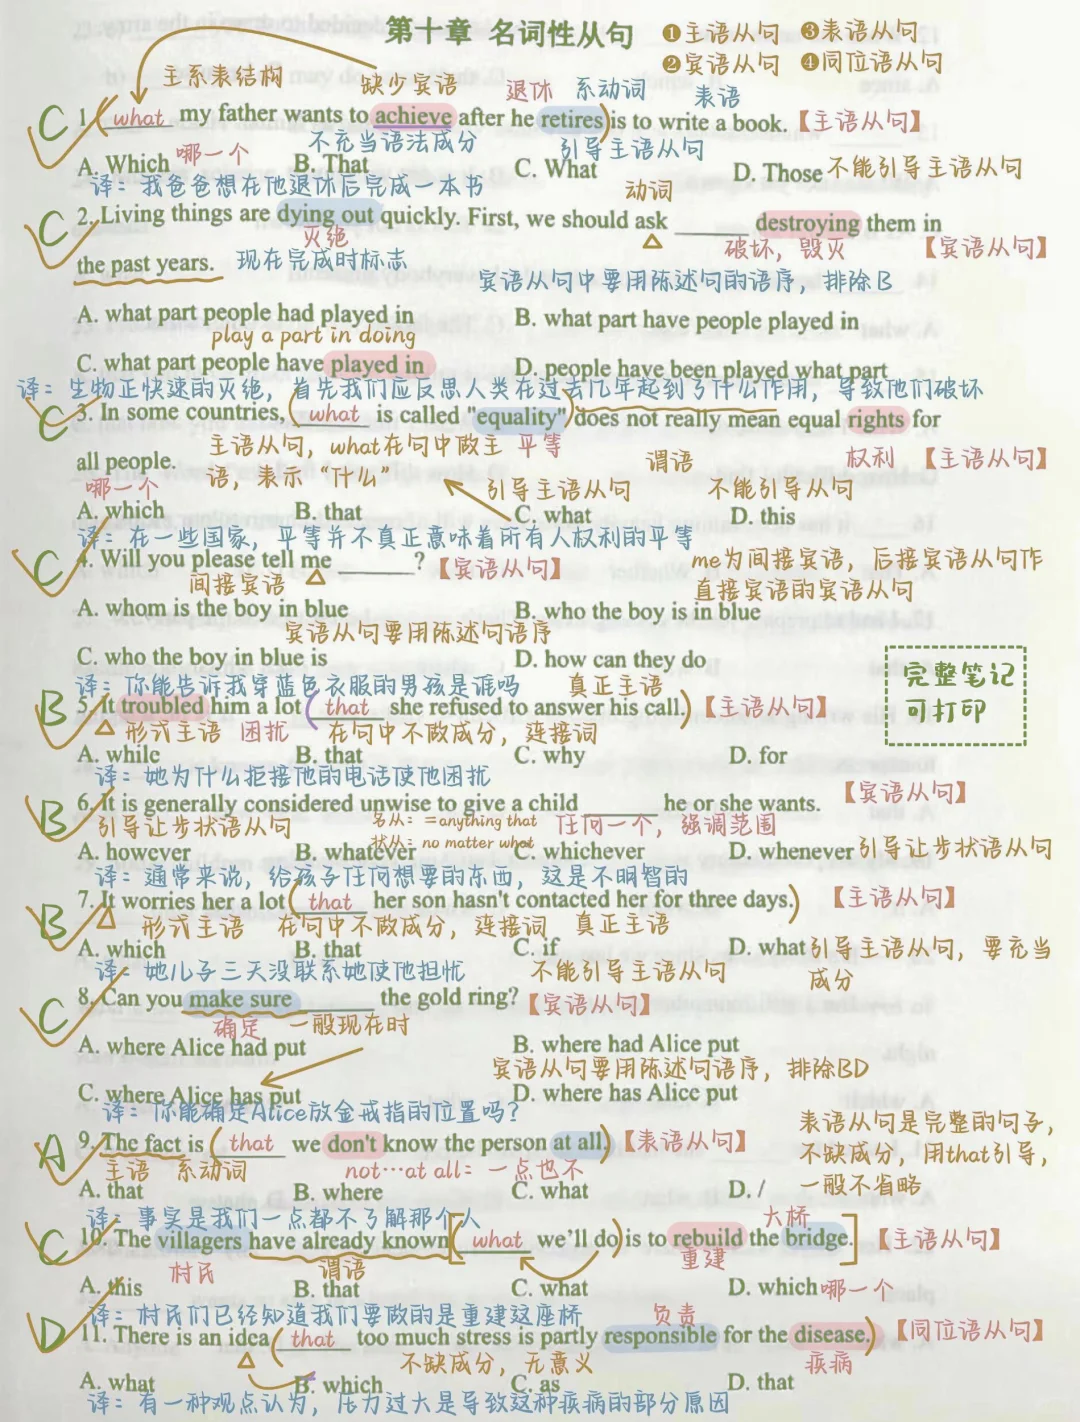 第十章 名词性从句 ❶主语从句 ❸表语从句
❷宾语从句 ❹同位语从句
主系表结构 缺少宾语 退休 系动词 表语
C 1. (what my father wants to achieve after he retires) is to write a book.【主语从句】
不充当语法成分 引导主语从句
A. Which 哪一个 B. That C. What D. Those 不能引导主语从句
译：我爸爸想在他退休后完成一本书 动词
C 2. Living things are dying out quickly. First, we should ask ______ destroying them in
灭绝 破坏，毁灭 【宾语从句】
the past years. 现在完成时标志
宾语从句中要用陈述句的语序，排除B
A. what part people had played in B. what part have people played in
play a part in doing
C. what part people have played in D. people have been played what part
译：生物正快速的灭绝，首先我们应反思人类在过去几年起到了什么作用，导致他们破坏
C 3. In some countries, (what is called "equality") does not really mean equal rights for
主语从句，what在句中做主 平等 谓语 权利 【主语从句】
all people. 语，表示“什么”
哪一个 引导主语从句 不能引导从句
A. which B. that C. what D. this
译：在一些国家，平等并不真正意味着所有人权利的平等
C 4. Will you please tell me ______? 【宾语从句】 me为间接宾语，后接宾语从句作
间接宾语 直接宾语的宾语从句
A. whom is the boy in blue B. who the boy is in blue
宾语从句要用陈述句语序
C. who the boy in blue is D. how can they do
译：你能告诉我穿蓝色衣服的男孩是谁吗 真正主语
完整笔记
可打印
B 5. It troubled him a lot (that she refused to answer his call.)【主语从句】
形式主语 困扰 在句中不做成分，连接词
A. while B. that C. why D. for
译：她为什么拒接他的电话使他困扰
B 6. It is generally considered unwise to give a child ______ he or she wants. 【宾语从句】
引导让步状语从句 名从：=anything that 任何一个，强调范围
状从：no matter what
A. however B. whatever C. whichever D. whenever 引导让步状语从句
译：通常来说，给孩子任何想要的东西，这是不明智的
B 7. It worries her a lot (that her son hasn't contacted her for three days.) 【主语从句】
形式主语 在句中不做成分，连接词 真正主语
A. which B. that C. if D. what 引导主语从句，要充当
译：她儿子三天没联系她使他担忧 不能引导主语从句 成分
C 8. Can you make sure ______ the gold ring?【宾语从句】
确定 一般现在时
A. where Alice had put B. where had Alice put
宾语从句要用陈述句语序，排除BD
C. where Alice has put D. where has Alice put
译：你能确定Alice放金戒指的位置吗？
A 9. The fact is (that we don't know the person at all)【表语从句】
表语从句是完整的句子，
不缺成分，用that引导，
一般不省略
主语 系动词 not…at all：一点也不
A. that B. where C. what D. /
译：事实是我们一点都不了解那个人 大桥
C 10. The villagers have already known [(what we’ll do) is to rebuild the bridge.] 【主语从句】
村民 谓语 重建
A. this B. that C. what D. which 哪一个
译：村民们已经知道我们要做的是重建这座桥 负责
D 11. There is an idea (that too much stress is partly responsible for the disease.)【同位语从句】
不缺成分，无意义 疾病
A. what B. which C. as D. that
译：有一种观点认为，压力过大是导致这种疾病的部分原因